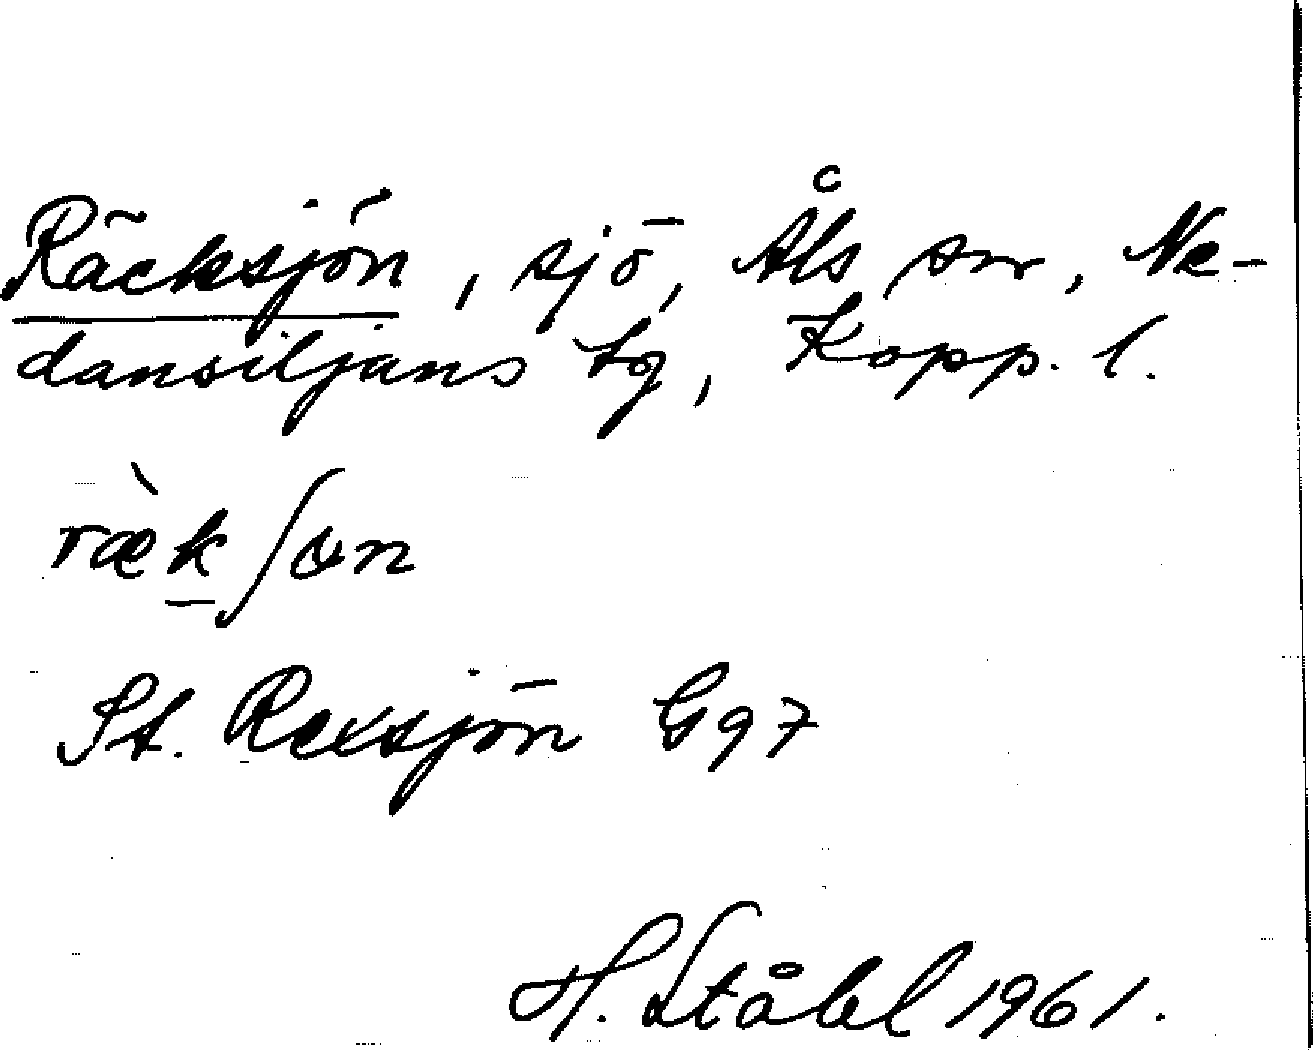 Räcksjön, sjö, Åls sn, Ne-
dansiljans tg, Kopp. l.
ræ̀k̲ʃɷn
St. Rexsjön G97
H. Ståhl 1961.